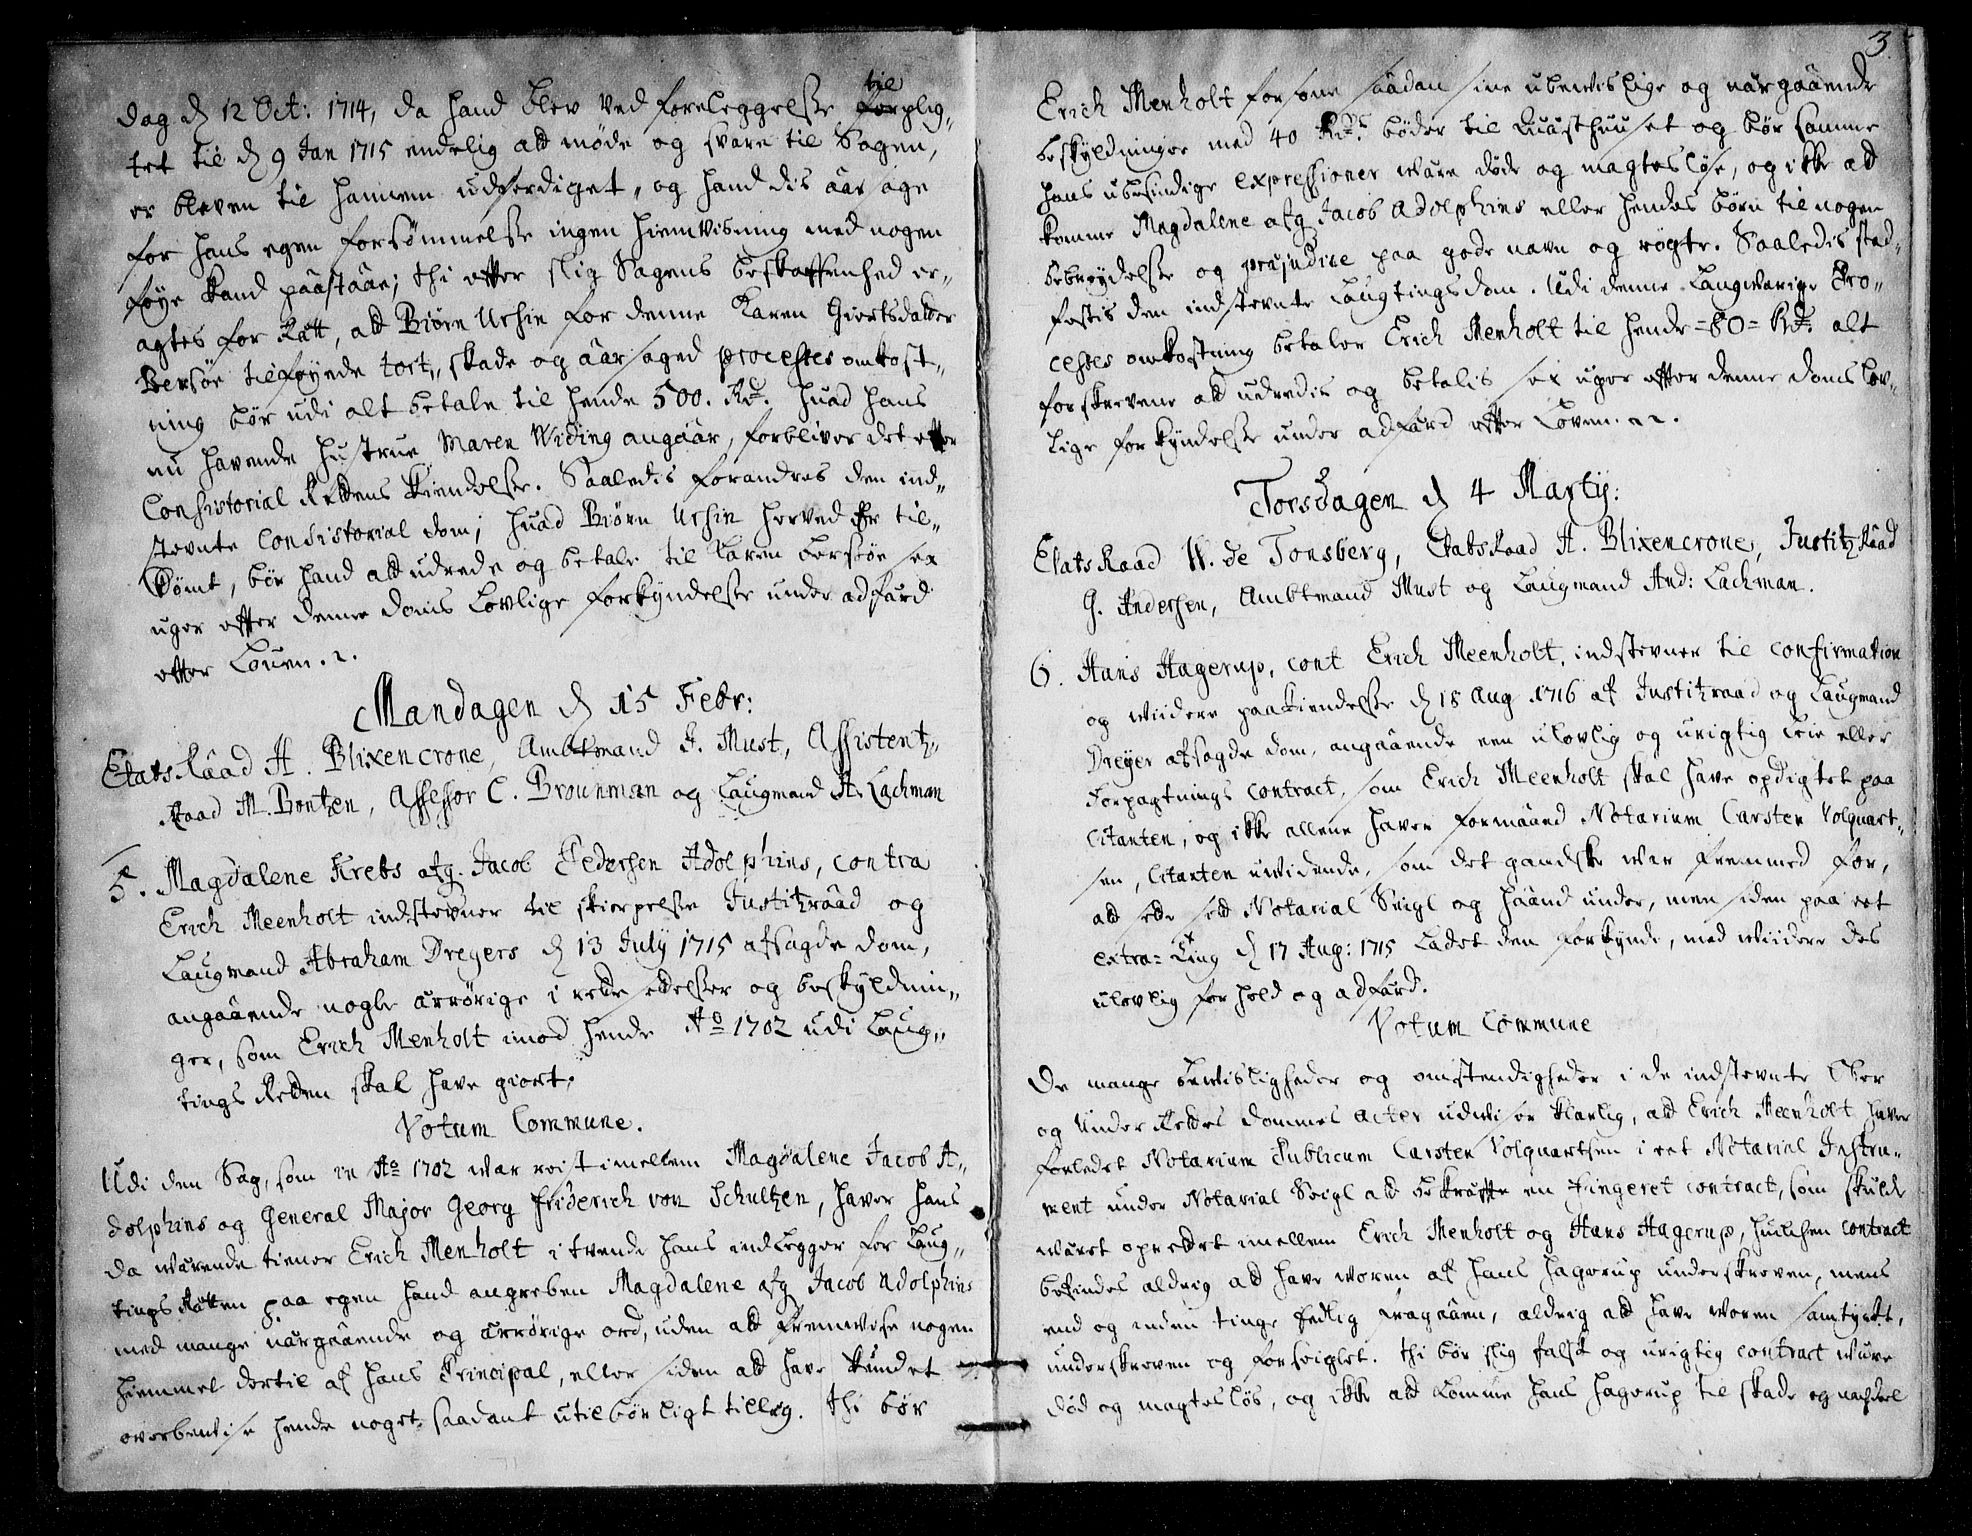 dag d 12 Oct: 1714, da hand blev ved foreleggelse til forplig„
tet til d 9 Jan 1715 endelig att møde og svare til Sagen,
er bleven til hannem udferdiget, og hand dis aarsage
for hans egen forsømmelse ingen hiemvisning med nogen
føye kand paastaae; thi efter slig Sagens beskaffenhed er„
agtes for Rett, att Biørn Ursin for denne Karen Giortsdatter
Bersøe tilføyede tort„ skade og aarsaged processes omkost„
ning bør udi alt betale til hende 500. Rd. huad hans
nu havende hustrue Maren Widing angaar, forbliver det efter
Consistorial Rettens kiendelse. Saaledis forandres den ind„
stevnte Consistorial dom; huad Biørn Ursin herved er til„
dømt, bør hand att udrede og betale til Karen Bersøe sex
uger efter denne doms Lovlige forkyndelse under adfærd
efter Loven. 2.
Mandagen d 15 Febr:
Etats Raad A. Blixencrone, Ambtmand I. Must, Assistentz„
Raad M. Bentzen, Assessor C. Brounman og Laugmand A. Lachman
5. Magdalene Krebs afg. Jacob Pedersen Adolphins, contra
Erich Meenholt indstevner til skierpelse Justitzraad og
Laugmand Abraham Dreyers d 13 July 1715 afsagde dom,
angaaende nogle ærrørige i rette settelser og beskyldnin„
ger, som Erich Menholt imod hende Ao 1702 udi Laug„
tings Retten skal have giort;
Votum Commune.
Udi den Sag, som in Ao 1702 war reist imellem Magdalene Jacob A„
dolphins og General Major Georg Friderich von Schultzen, haver hans
da wærende tiener Erich Menholt i tvende hans indlegger for Laug„
tings Retten paa egen hand angreben Magdalene afg Jacob Adolphins
med mange nærgaaende og ærrørige ord, uden att fremvise nogen
hiemmel dertil af hans Principal, eller siden att have kundet
overbevise hende noget saadant utilbørligt tilleg. thi bør
3.
Erich Menholt for sine saadan sine ubevislige og nærgaaende
beskyldninger med 40 Rdr bøder til Quæsthuuset og bør samme
hans ubesindige expressioner være døde og magtesløse, og ikke att
komme Magdalene afg Jacob Adolphins eller hendes børn til nogen
bebreydelse og præjudice paa gode navn og rögte. Saaledis stad„
festis den indstevnte Laugtingsdom. Udi denne Langvarige Pro„
cesses omkostning betaler Erich Menholt til hende =80= Rd. alt
forskrevene att udredis og betalis sex uger efter denne doms Lov„
lige forkyndelse under adfærd efter Loven. 2.
Torsdagen d 4 Martij:
Etats Raad W. de Tonsberg, Etats Raad A. Blixencrone, Justitz Raad
G. Andersen, Ambtmand Must og Laugmand And: Lachman.
6. Hans Hagerup, cont Erich Meenholt, indstevner til confirmation
og viidere paakiendelse d 18 Aug 1716 af Justitzraad og Laugmand
Dreyer afsagde dom, angaaende een ulovlig og urigtig leie eller
Forpagtnings Contract, som Erich Meenholt skal have opdigtet paa
Citanten, og ikke allene haver formaaed Notarium Carsten Volquart„
sen, Citanten uvidende, som det gandske war fremmed for,
att sette sitt Notarial Seigl og haand under, men siden paa ret
extra=ting d 17 Aug: 1715 Ladet den forkynde, med viidere des
ulovlig forhold og adfærd.
Votum Commune
De mange bevisligheder og omstendigheder i de indstevnte Over
og Under Rettes dommes acter udviser klarlig, att Erich Meenholt haver
forledet Notarium Publicum Carsten Volquartsen i ret Notarial Instru„
ment under Notarial Seigl att bekræfte en fingeret contract, som skulde
wæret oprettet imellem Erich Menholt og Hans Hagerup, huilchen contract
befindes aldrig att have været af Hans Hagerup underskreven, mens
end og inden tinge edlig fragaaen, aldrig att have været samtyckt,
underskreven og forseiglet. thi bør slig falsk og urigtig contract wære
død og magtesløs, og ikke att komme Hans Hagerup til skade og nachdeel